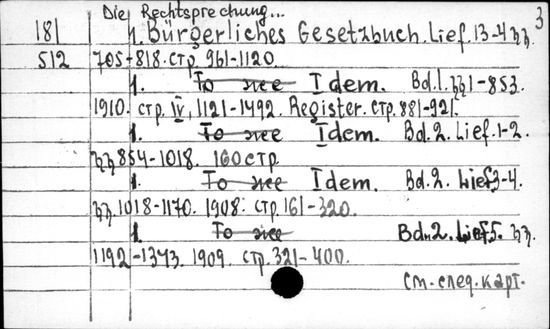 Die Rechtsprechung... 3
181 1. Bürgerliches Gesetzbuch. Lief. 13-4 §§
512 705-818. стр. 961-1120.
1. То же Idem. Bd. 1. §§ 1-853.
1910. стр. IV, 1121-1492. Register. стр. 881-921.
1. То же Idem. Bd. 2. Lief. 1-2.
§§ 854-1018. 160 стр.
1. То же Idem. Bd. 2. Lief. 3-4.
§§ 1018-1170. 1908. стр. 161-320.
1. То же Bd. 2. Lief. 5. §§.
1192-1343. 1909. стр. 321-400.
См. след. карт.